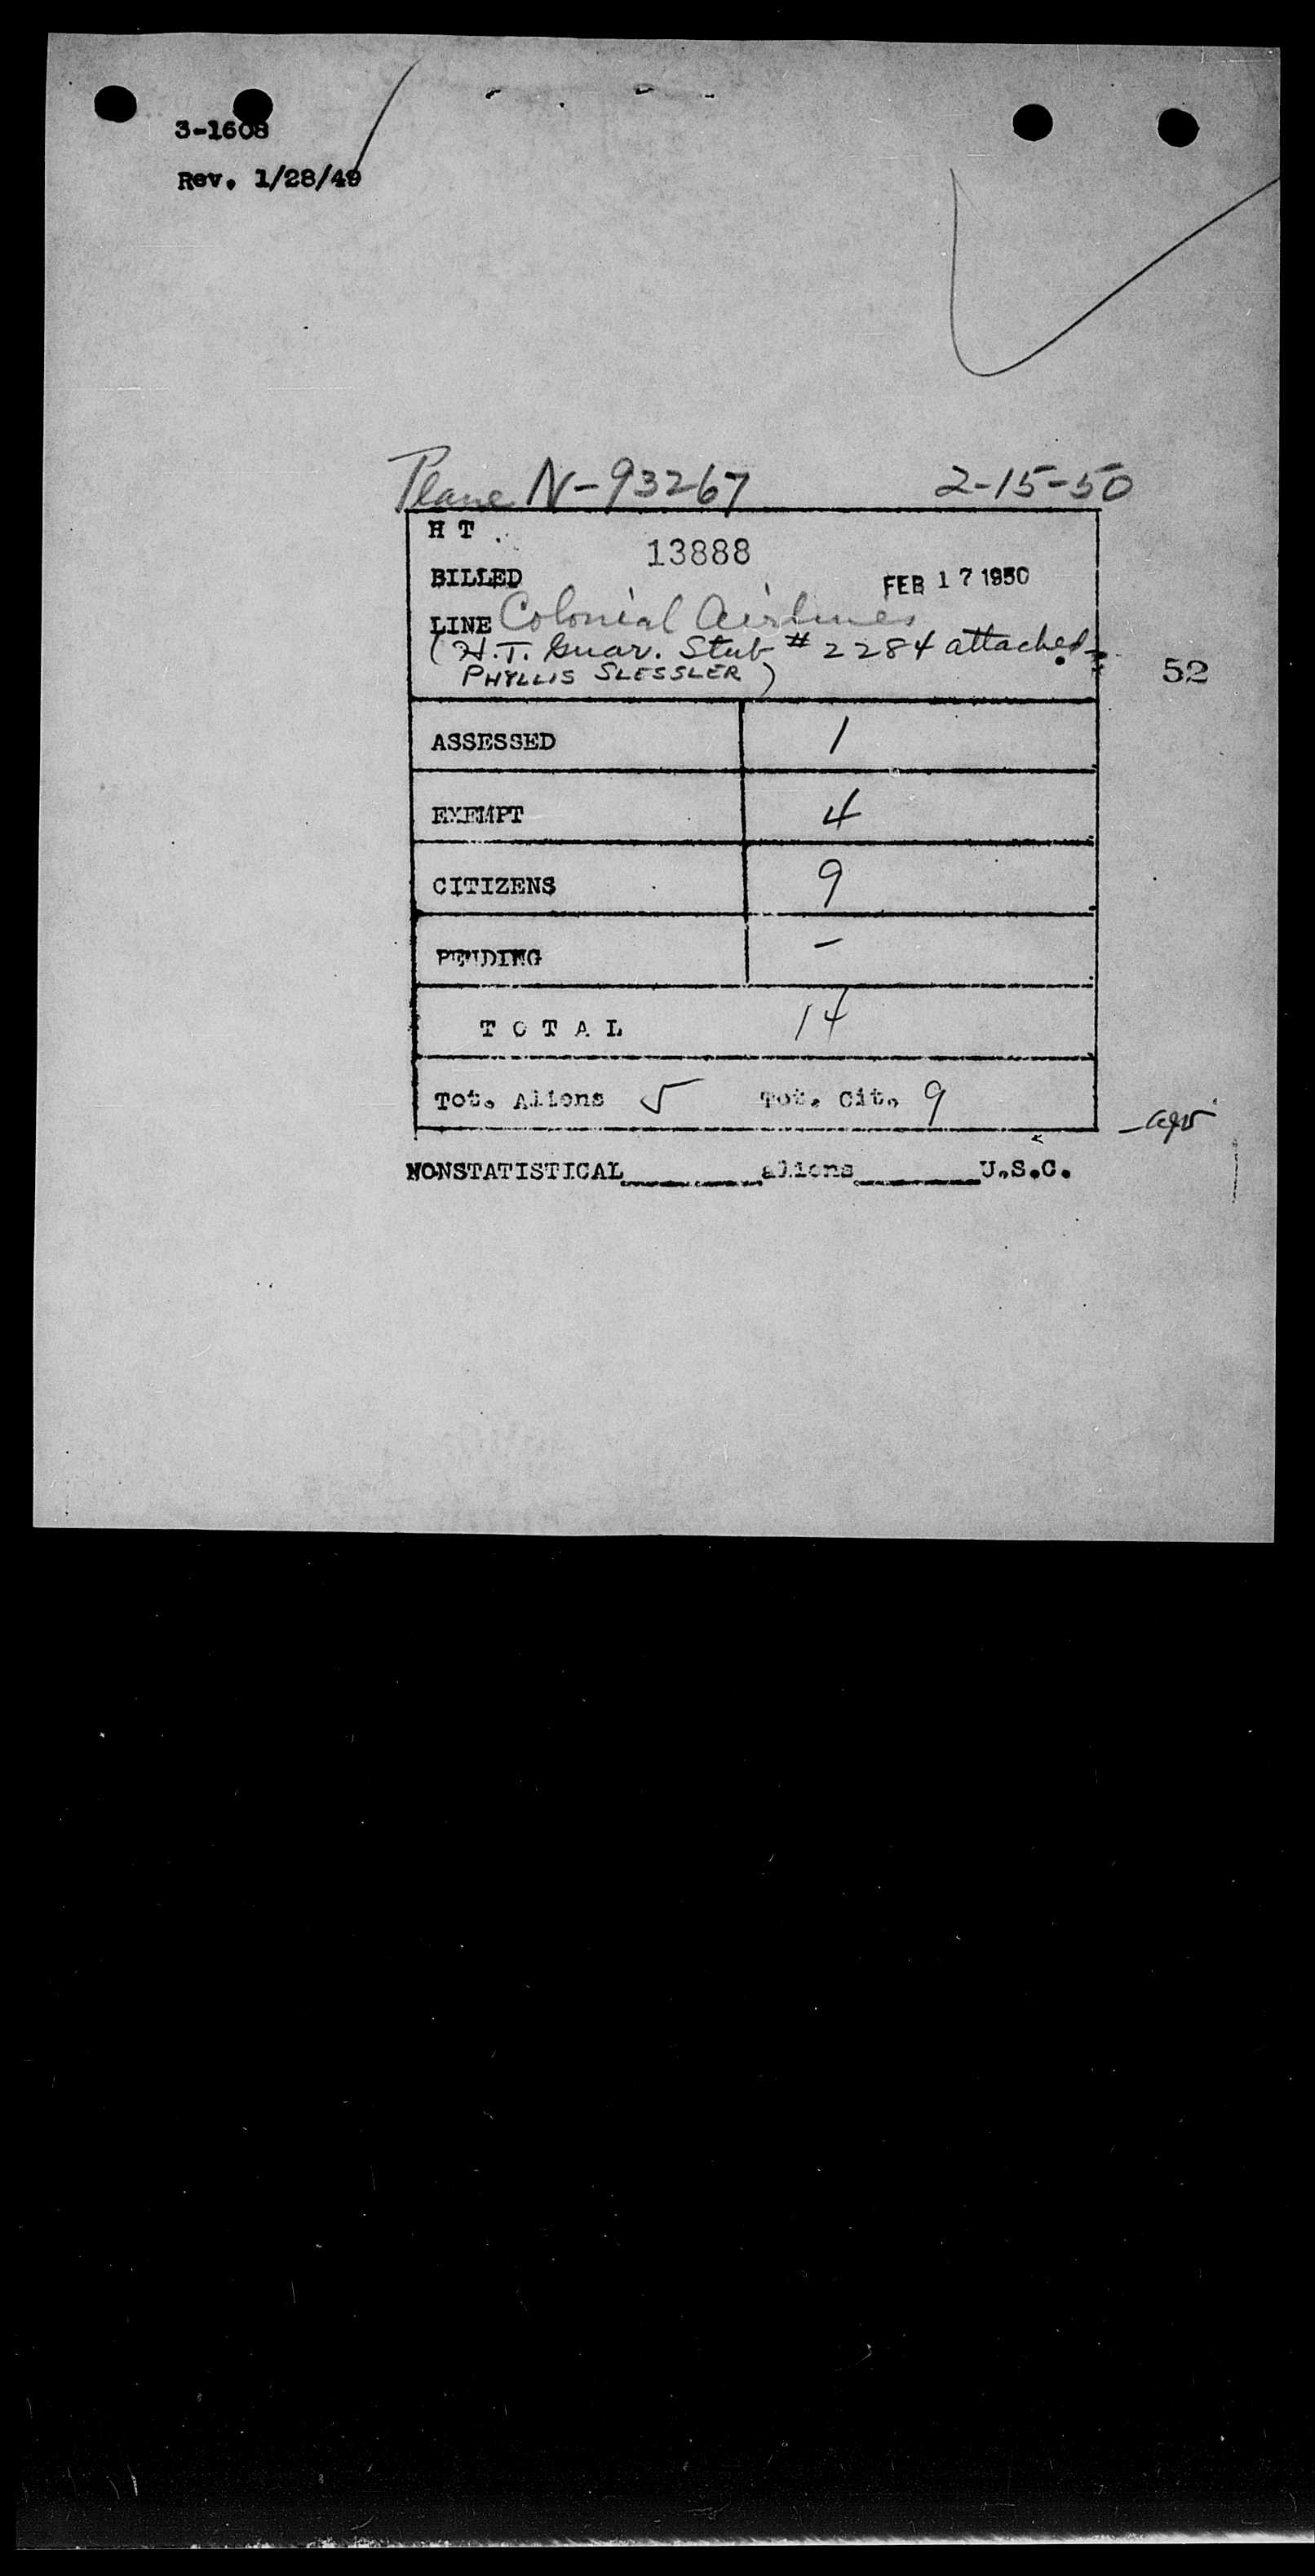 3-1608
Rev. 1/28/49
Plane N-93267 2-15-50
H T
13888
BILLED FEB 17 1950
LINE Colonial Airlines
(H.T. Guar. Stub # 2284 attached-
PHYLLIS SLESSLER)
52
ASSESSED 1
EXEMPT 4
CITIZENS 9
PENDING -
T O T A L 14
Tot. Aliens 5 Tot. Cit. 9
NONSTATISTICAL________aliens________U.S.C.